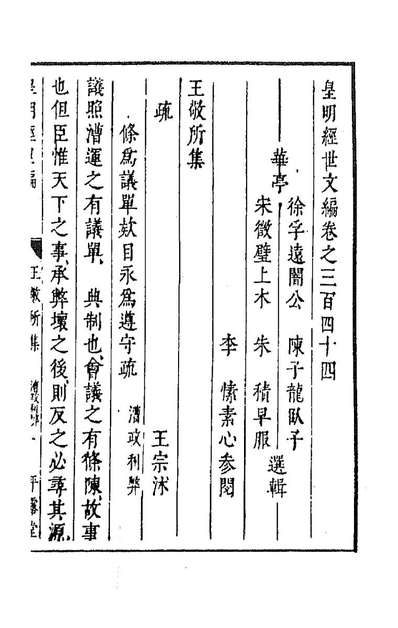 皇明經世文編卷之三百四十四
徐孚遠闇公　陳子龍臥子
華亭　　　　選輯
宋徵璧上木　朱　積早服
李　愫素心參閱
王敬所集
疏　　　　王宗沐
條爲議單款目永爲遵守疏　漕政利弊
議照漕運之有議單、典制也、會議之有條陳、故事
也、但臣惟天下之事、承弊壞之後、則反之必尋其源、
皇明經世編　王敬所集　漕政利弊　一　平露堂